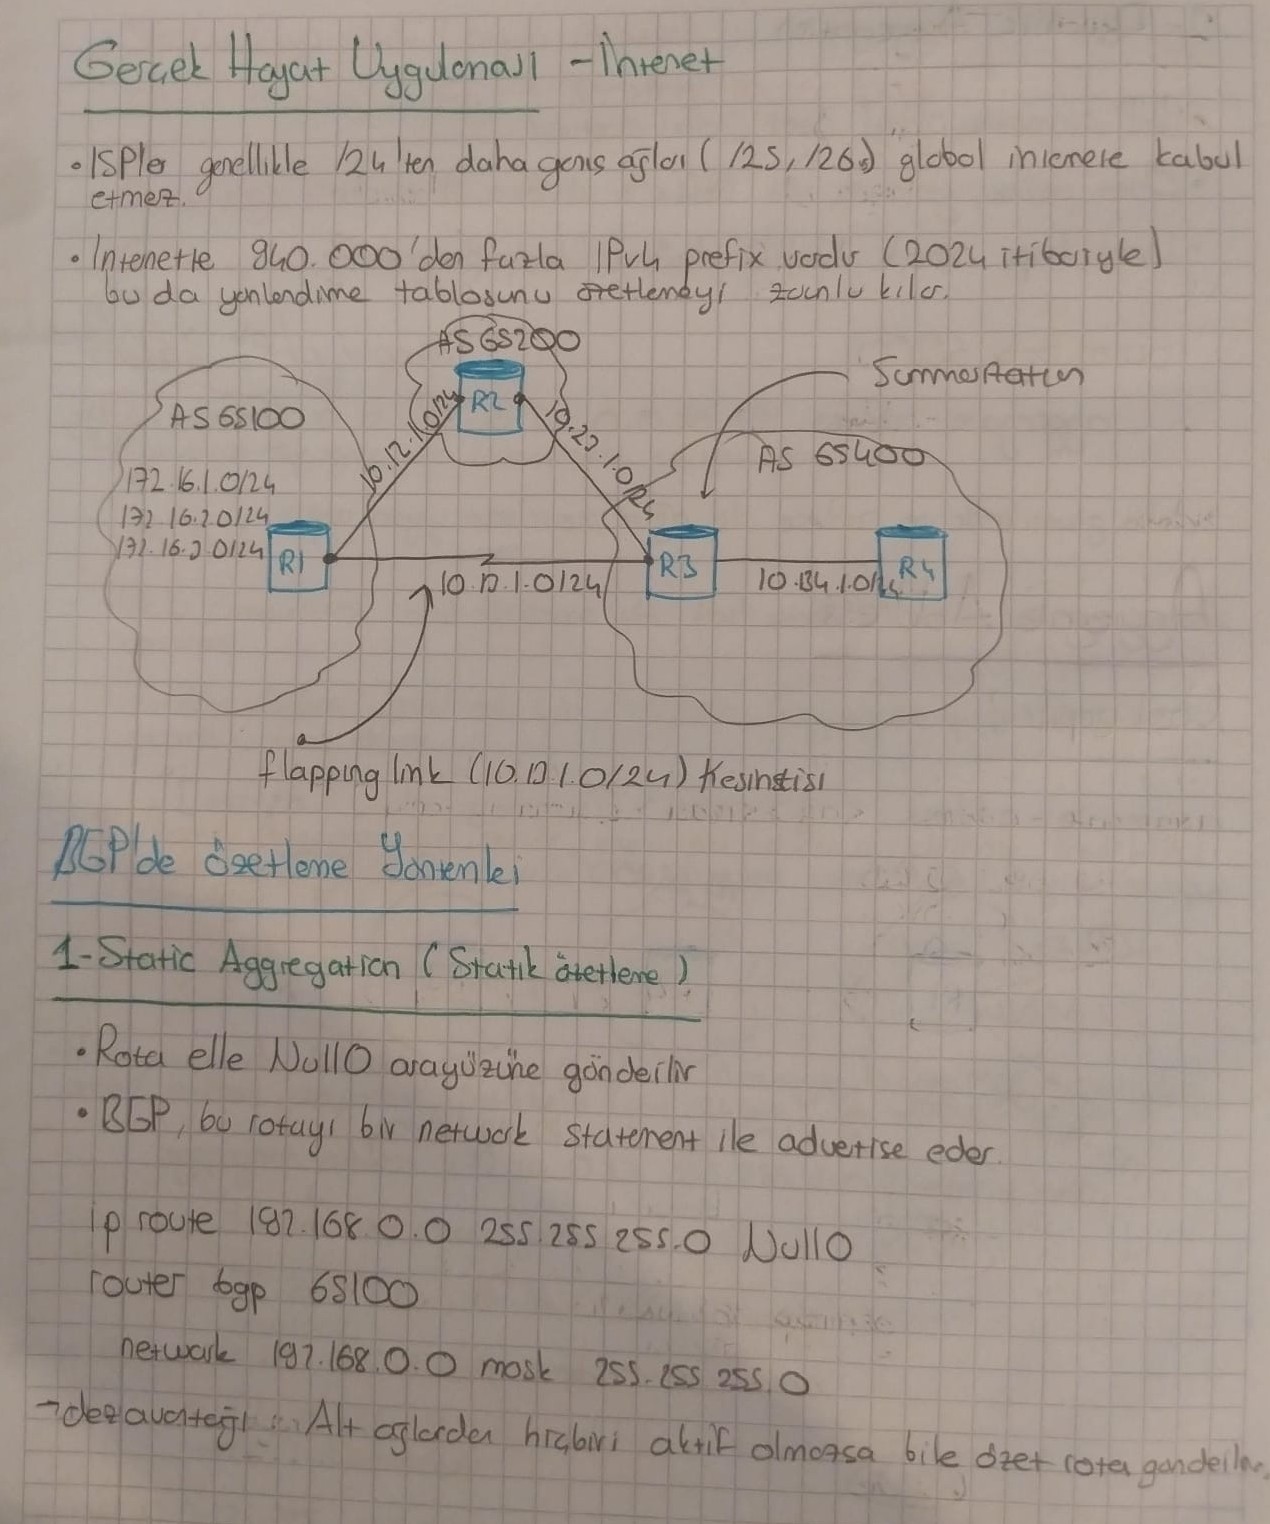 Gerçek Hayat Uygulaması - İnternet
• ISP'ler genellikle /24'ten daha geniş ağları (/25, /26.) global internete kabul
etmez.
• Internette 940.000'den fazla IPv4 prefix vardır (2024 itibariyle)
bu da yönlendirme tablosunu özetlemeyi zorunlu kılar.
AS 65200
Summarization
R2
AS 65100
10.12.1.0/24
10.23.1.0/24
AS 65400
172.16.1.0/24
172.16.2.0/24
172.16.3.0/24
R1
R3
R4
10.13.1.0/24
10.34.1.0/24
flapping link (10.13.1.0/24) Kesintisi
BGP'de özetleme Yöntemleri
1-Static Aggregation (Statik özetleme)
• Rota elle Null0 arayüzüne gönderilir
• BGP, bu rotayı bir network statement ile advertise eder.
ip route 192.168.0.0 255.255.255.0 Null0
router bgp 65100
network 192.168.0.0 mask 255.255.255.0
→dezavantajı: Alt ağlardan hiçbiri aktif olmazsa bile özet rota gönderilir.